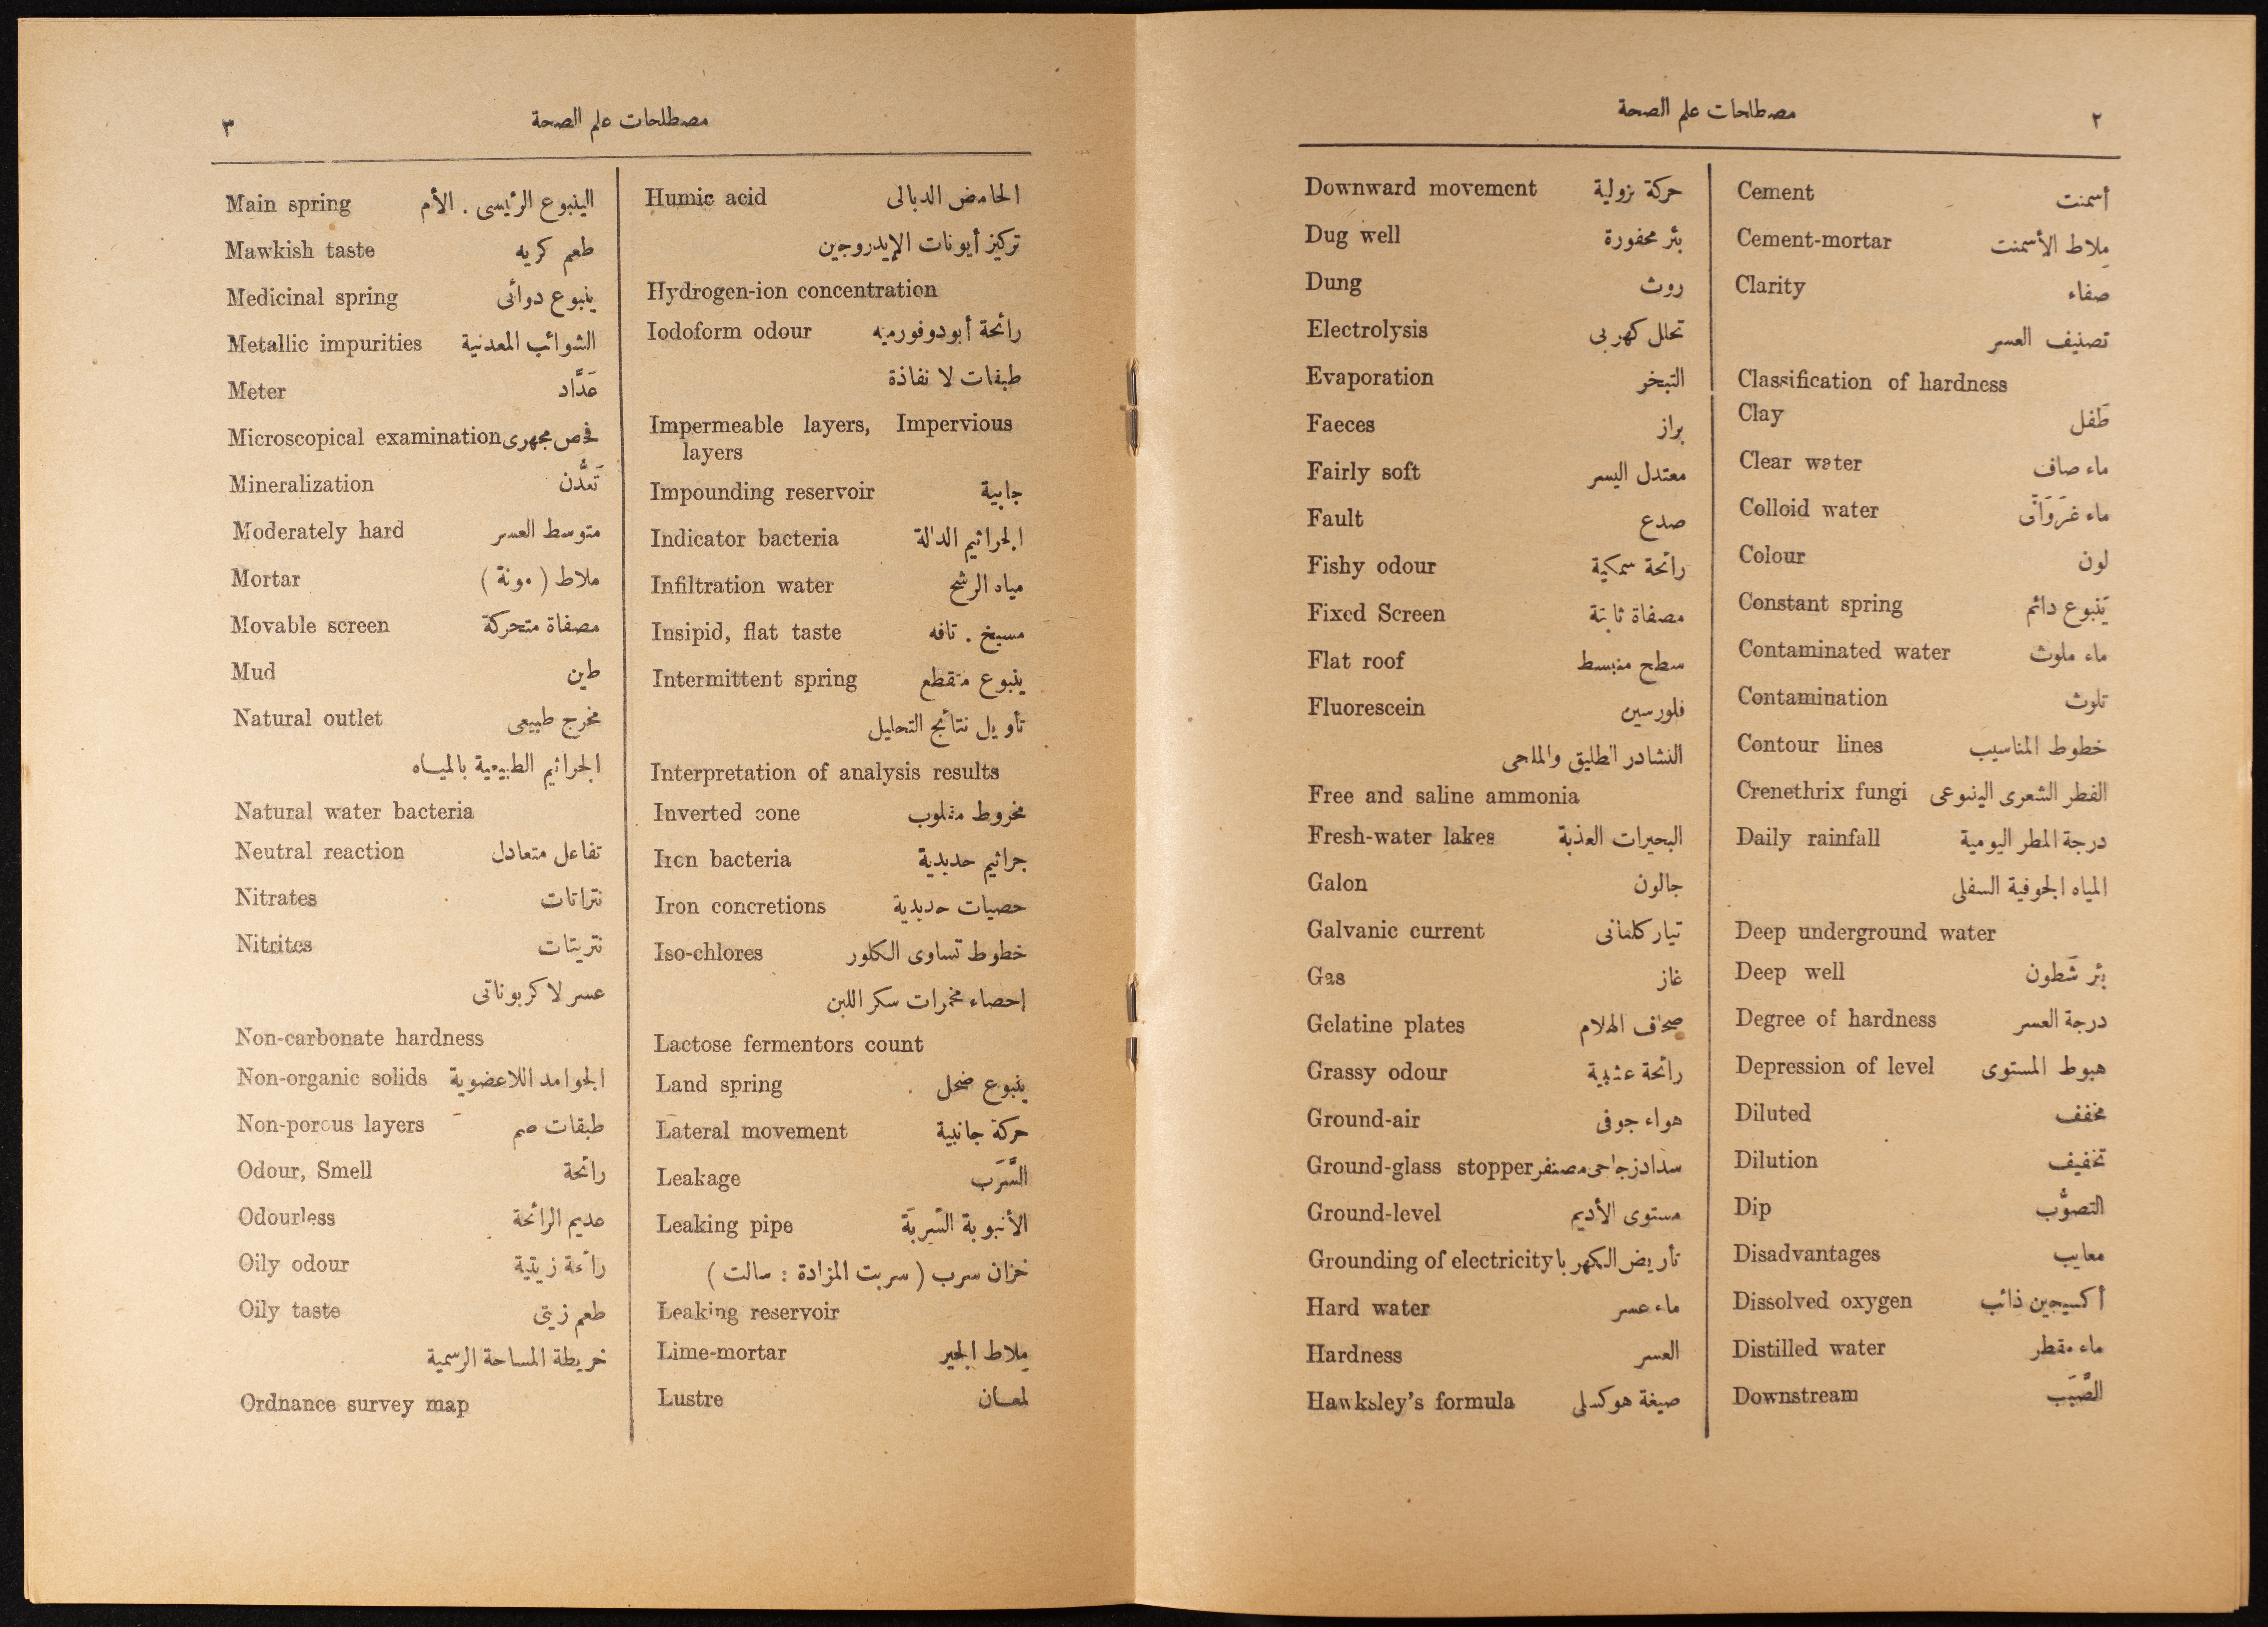 ٢
مصطلحات علم الصحة
Cement أسمنت
Cement-mortar مِلاط الأسمنت
Clarity صفاء
تصنيف العسر
Classification of hardness
Clay طَفل
Clear water ماء صاف
Colloid water ماء غَرَوَانى
Colour لون
Constant spring يَنبوع دائم
Contaminated water ماء ملوث
Contamination تلوث
Contour lines خطوط المناسيب
Crenethrix fungi الفطر الشعرى الينبوعى
Daily rainfall درجة المطر اليومية
المياه الجوفية السفلى
Deep underground water
Deep well بئر شَطون
Degree of hardness درجة العسر
Depression of level هبوط المستوى
Diluted مخفف
Dilution تخفيف
Dip التصوُّب
Disadvantages معايب
Dissolved oxygen أكسيجين ذائب
Distilled water ماء مقطر
Downstream الصَّبَب
Downward movement حركة نزولية
Dug well بئر محفورة
Dung روث
Electrolysis تحلل كهربى
Evaporation التبخر
Faeces براز
Fairly soft معتدل اليسر
Fault صدع
Fishy odour رائحة سمكية
Fixed Screen مصفاة ثابتة
Flat roof سطح منبسط
Fluorescein فلورسين
النشادر الطليق والملحى
Free and saline ammonia
Fresh-water lakes البحيرات العذبة
Galon جالون
Galvanic current تيار كلفانى
Gas غاز
Gelatine plates صحاف الهلام
Grassy odour رائحة عشبية
Ground-air هواء جوفى
Ground-glass stopper سداد زجاجى مصنفر
Ground-level مستوى الأديم
Grounding of electricity تأريض الكهربا
Hard water ماء عسر
Hardness العسر
Hawksley's formula صيغة هوكسلى
مصطلحات علم الصحة
٣
Humic acid الحامض الدبالى
تركيز أيونات الإيدروجين
Hydrogen-ion concentration
Iodoform odour رائحة أيودوفورميه
طبقات لا نفاذة
Impermeable layers, Impervious
layers
Impounding reservoir جابية
Indicator bacteria الجراثيم الدالة
Infiltration water مياه الرشح
Insipid, flat taste مسيخ . تافه
Intermittent spring ينبوع متقطع
تأويل نتائج التحليل
Interpretation of analysis results
Inverted cone مخروط مقلوب
Iron bacteria جراثيم حديدية
Iron concretions حصيات حديدية
Iso-chlores خطوط تساوى الكلور
إحصاء مخمرات سكر اللبن
Lactose fermentors count
Land spring ينبوع ضحل
Lateral movement حركة جانبية
Leakage السَّرَب
Leaking pipe الأنبوبة السَّرِبَة
خزان سرب ( سربت المزادة : سالت )
Leaking reservoir
Lime-mortar مِلاط الجير
Lustre لمعان
Main spring الينبوع الرئيسى . الأم
Mawkish taste طعم كريه
Medicinal spring ينبوع دوائى
Metallic impurities الشوائب المعدنية
Meter عَدَّاد
Microscopical examination فحص مجهرى
Mineralization تَعدُّن
Moderately hard متوسط العسر
Mortar ملاط ( مونة )
Movable screen مصفاة متحركة
Mud طين
Natural outlet مخرج طبيعى
الجراثيم الطبيعية بالمياه
Natural water bacteria
Neutral reaction تفاعل متعادل
Nitrates نتراتات
Nitrites نتريتات
عسر لا كربوناتى
Non-carbonate hardness
Non-organic solids الجوامد اللاعضوية
Non-porous layers طبقات صم
Odour, Smell رائحة
Odourless عديم الرائحة
Oily odour رائحة زيتية
Oily taste طعم زيتى
خريطة المساحة الرسمية
Ordnance survey map